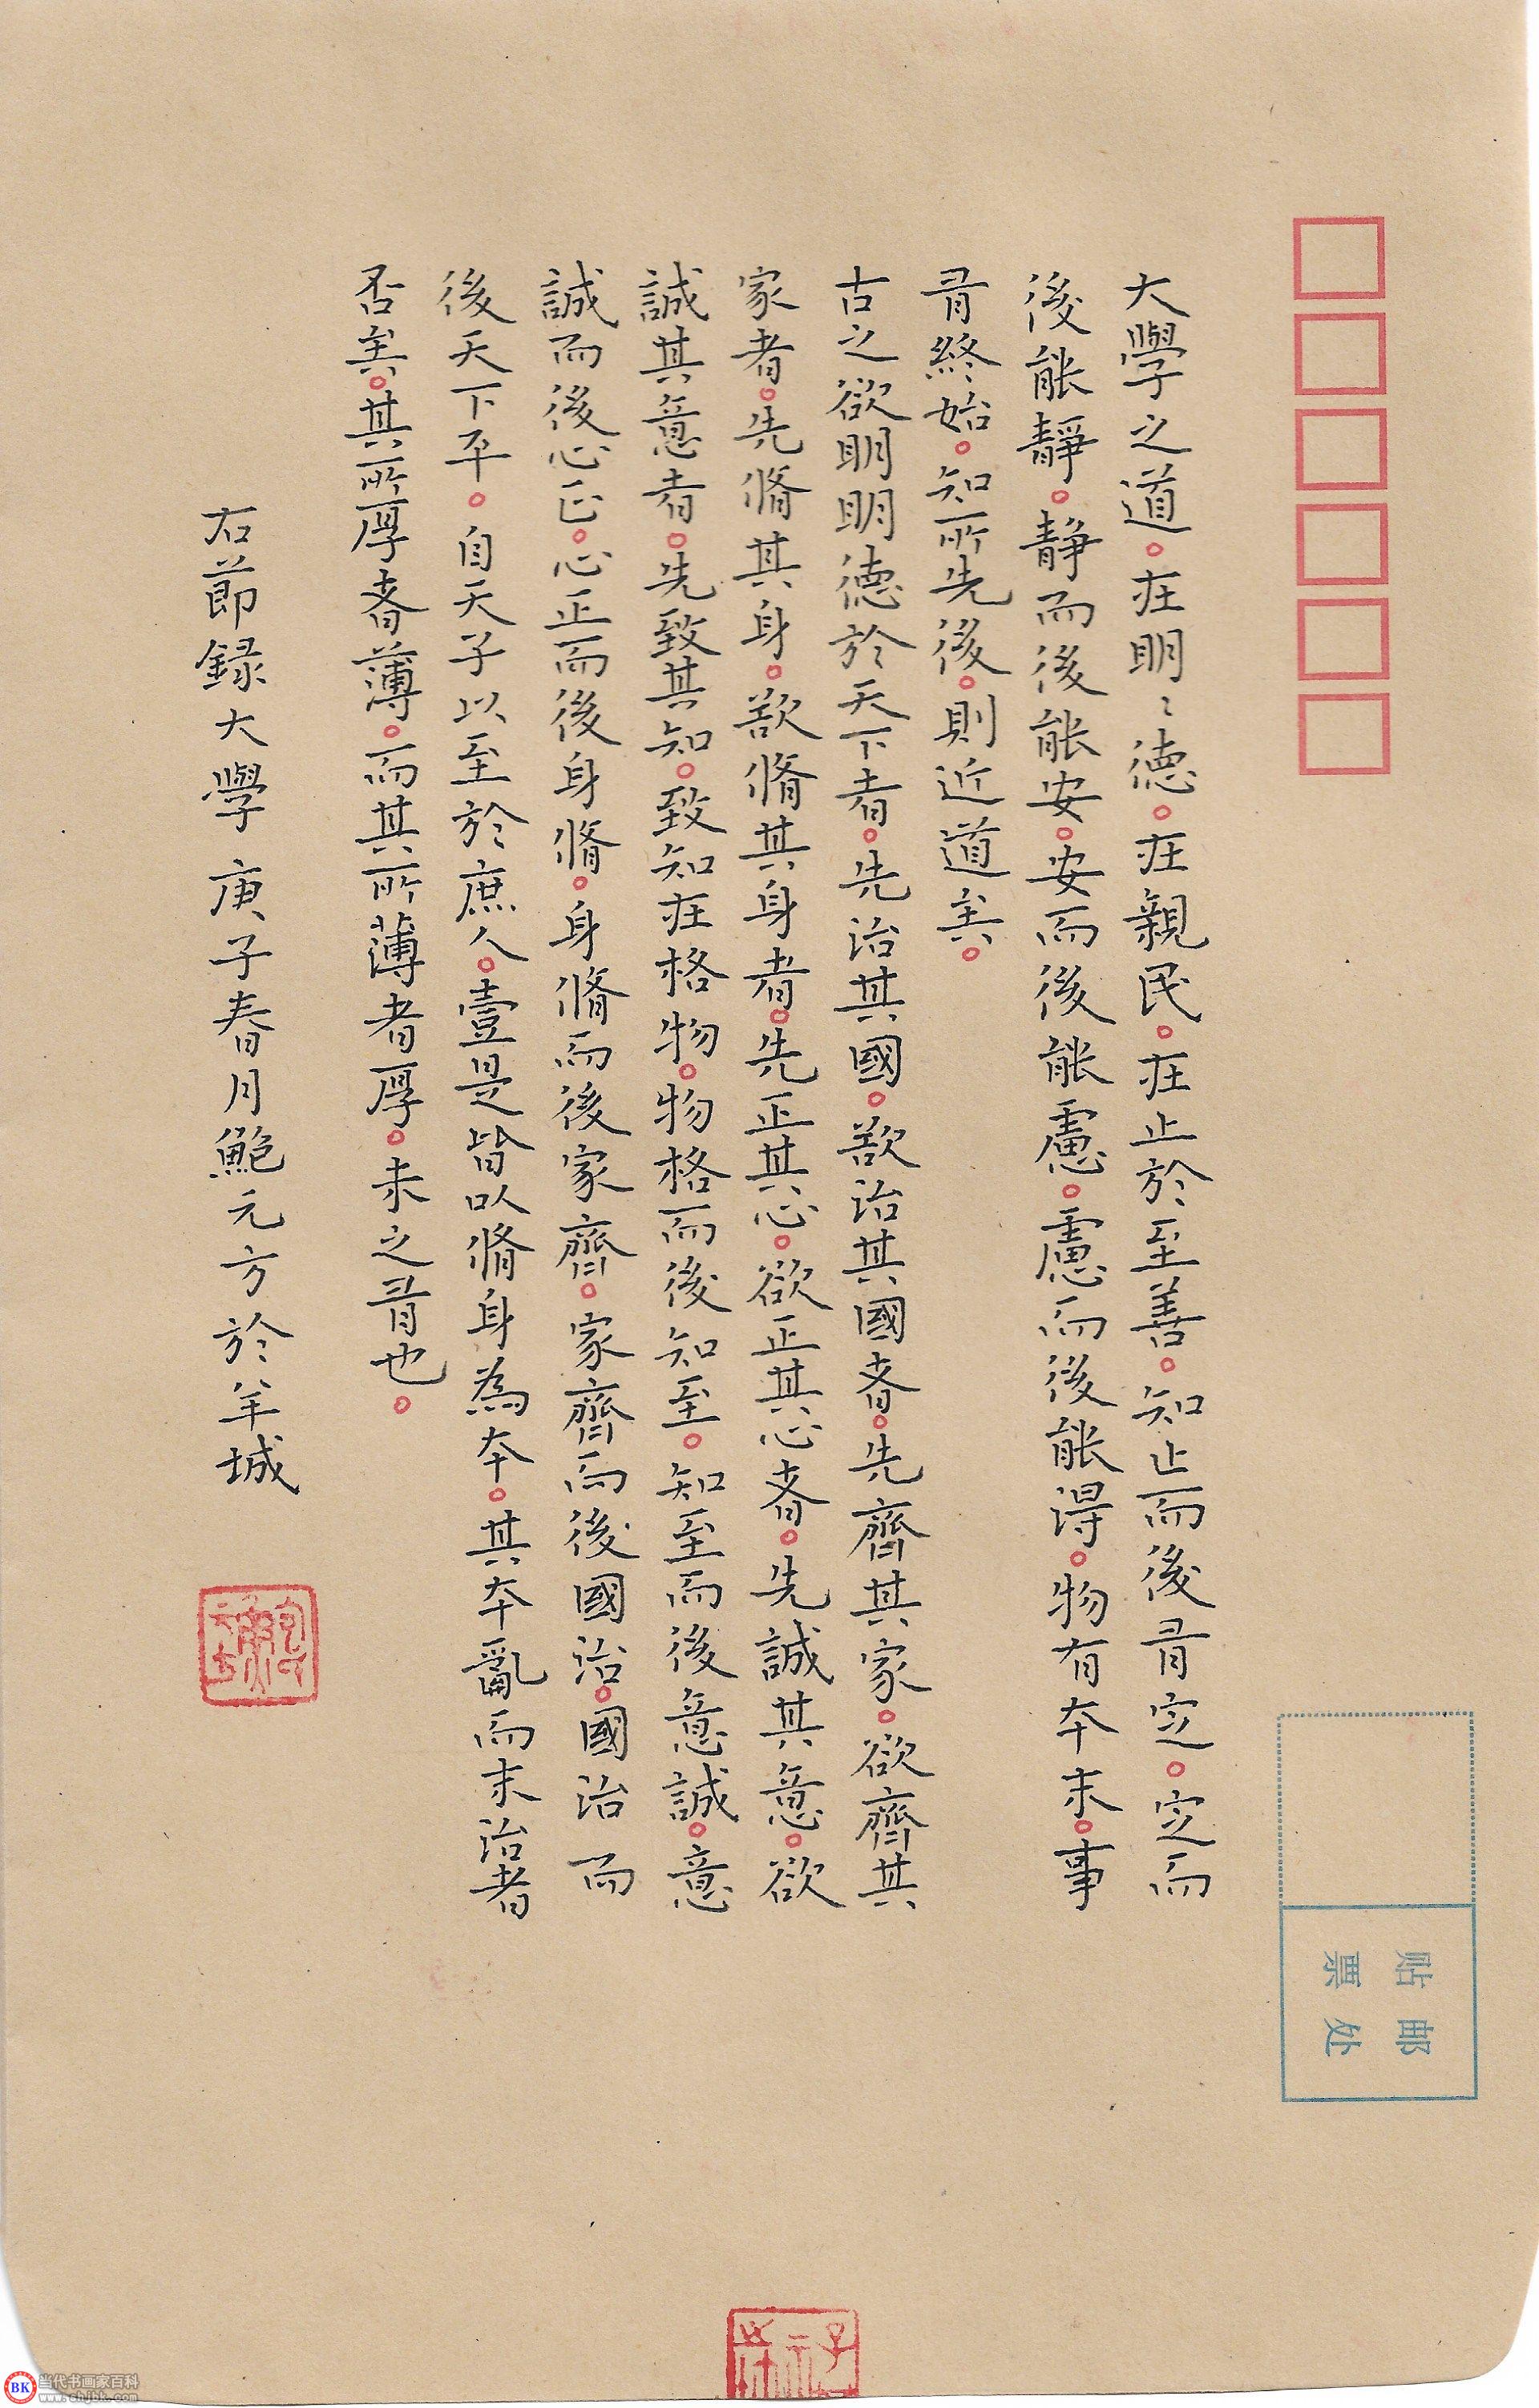 大學之道。在明〻德。在親民。在止於至善。知止而後有定。定而
後能靜。静而後能安。安而後能慮。慮而後能得。物有本末。事
有終始。知所先後。則近道矣。
古之欲明明德於天下者。先治其國。欲治其國者。先齊其家。欲齊其
家者。先脩其身。欲脩其身者。先正其心。欲正其心者。先誠其意。欲
誠其意者。先致其知。致知在格物。物格而後知至。知至而後意誠。意
誠而後心正。心正而後身脩。身脩而後家齊。家齊而後國治。國治而
後天下平。自天子以至於庶人。壹是皆以脩身為本。其本亂而末治者
否矣。其所厚者薄。而其所薄者厚。未之有也。
右節録大學 庚子春月鮑元方於羊城
贴邮
票处
BK 当代书画家百科
www.shjbk.com